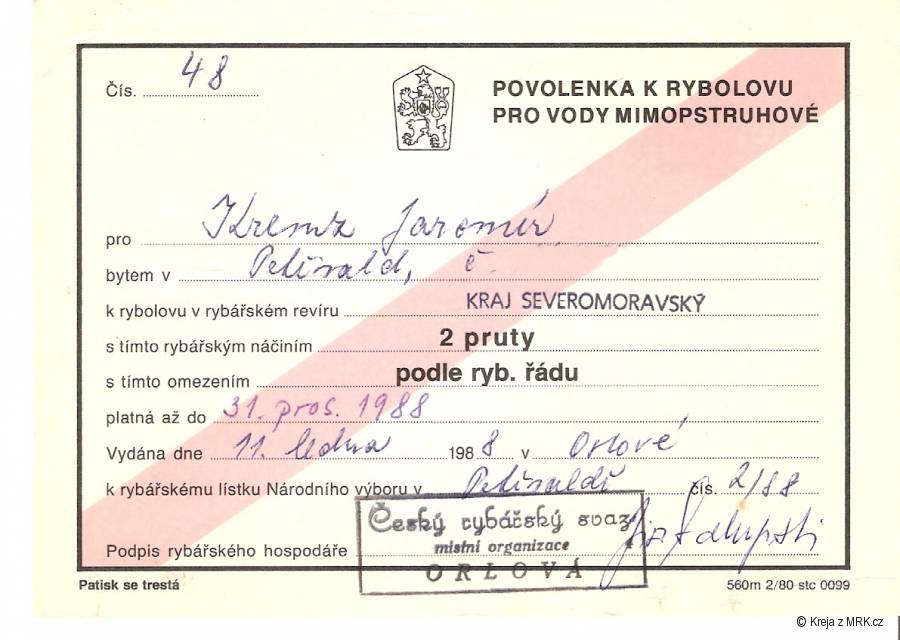 Čís. 48
POVOLENKA K RYBOLOVU
PRO VODY MIMOPSTRUHOVÉ
pro Kremz Jaromír
bytem v Petřvald, č
k rybolovu v rybářském revíru KRAJ SEVEROMORAVSKÝ
s tímto rybářským náčiním 2 pruty
s tímto omezením podle ryb. řádu
platná až do 31. pros. 1988
Vydána dne 11. ledna 1988 v Orlové
k rybářskému lístku Národního výboru v Petřvaldě čís. 2/88
Český rybářský svaz
místní organizace
ORLOVÁ
Podpis rybářského hospodáře
Patisk se trestá
560m 2/80 stc 0099
© Kreja z MRK.cz